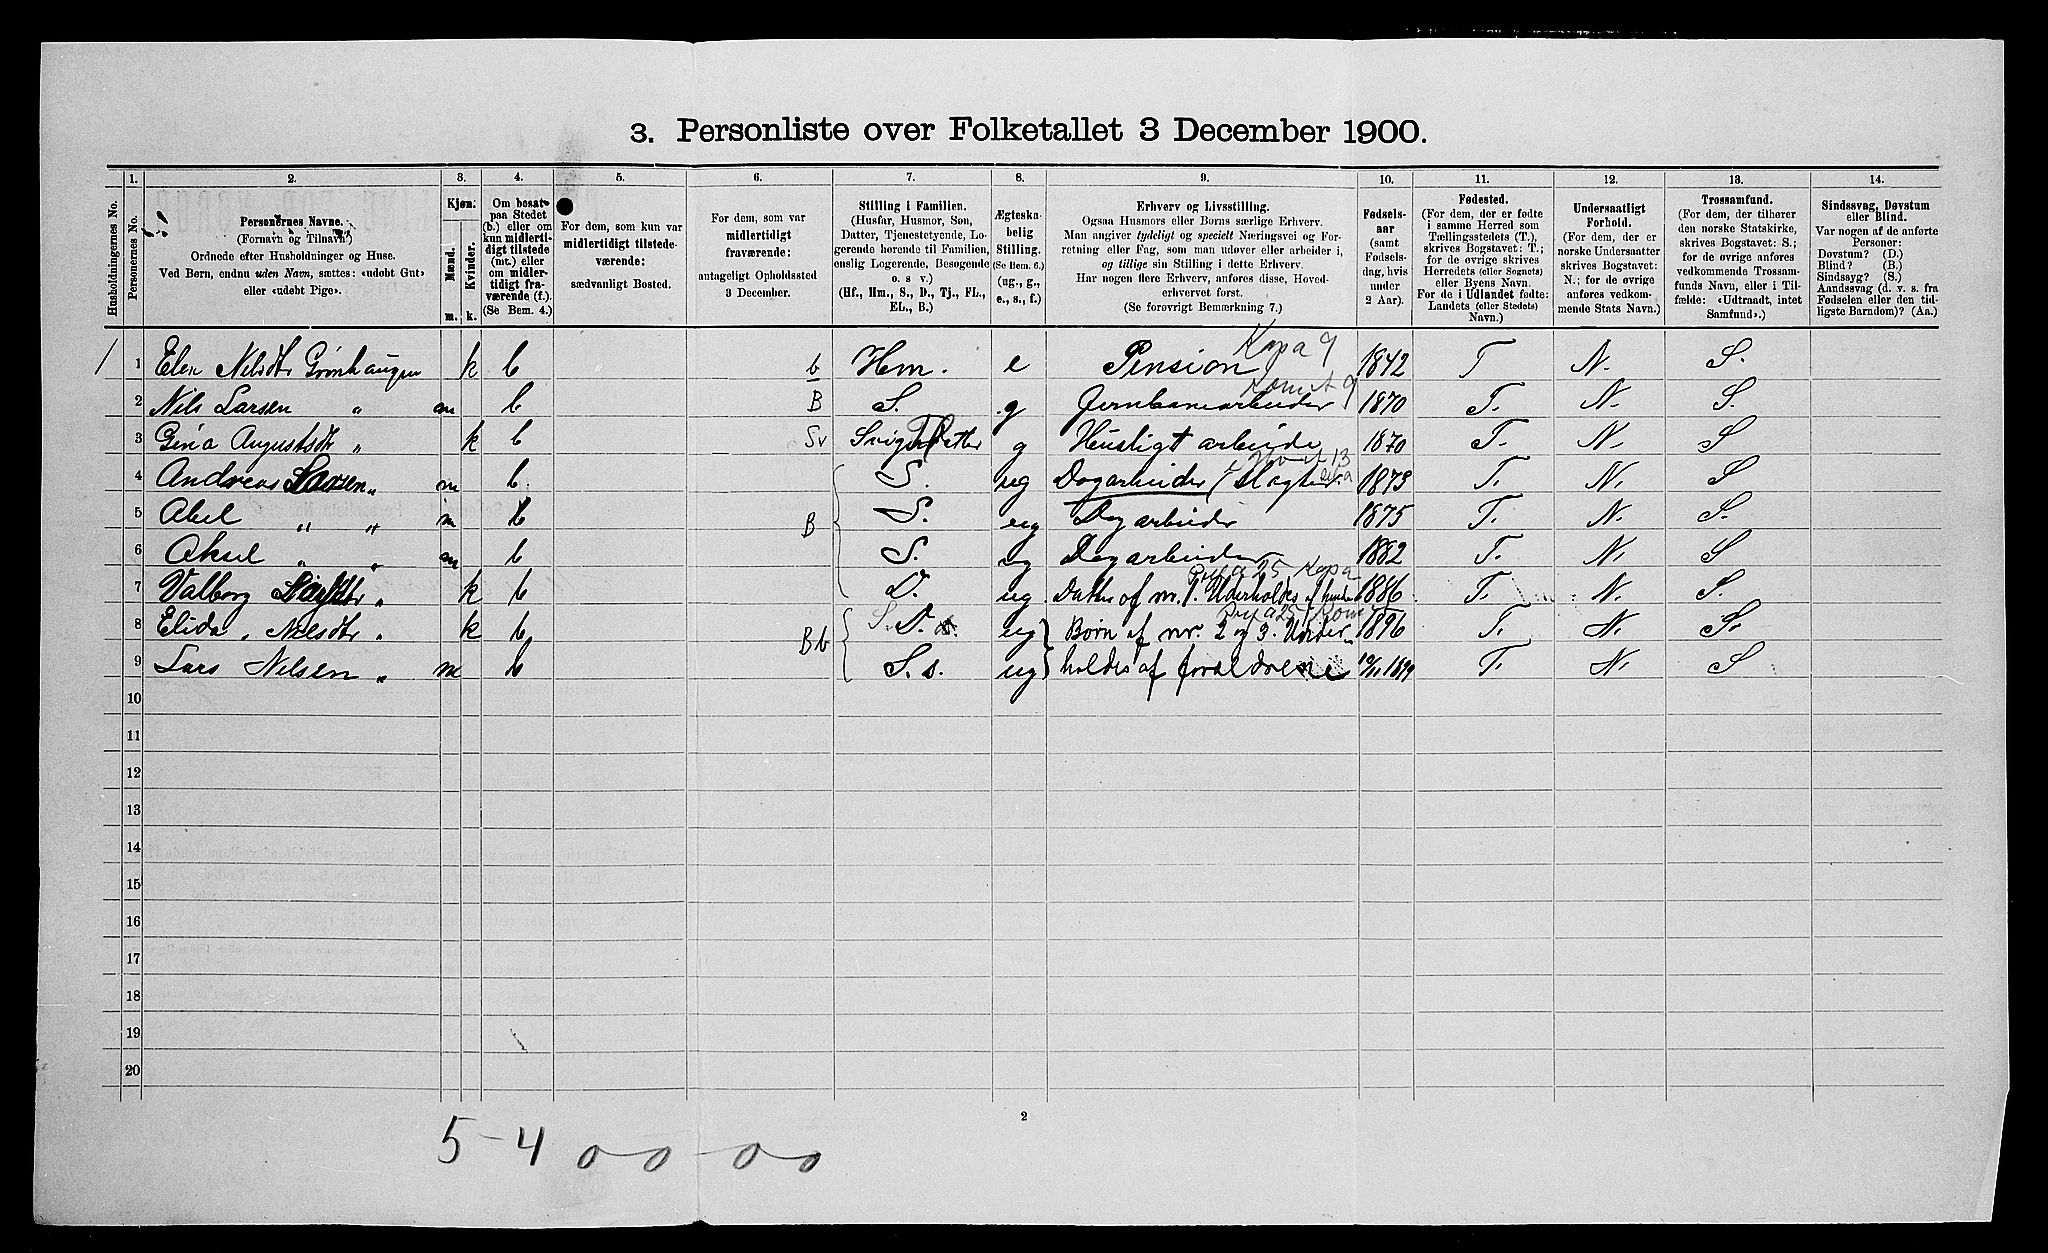 3. Personliste over Folketallet 3 December 1900.
Husholdningernes No.
1.
Personernes No.
2.
Personernes Navne.
(Fornavn og Tilnavn)
Ordnede efter Husholdninger og Huse.
Ved Børn, endnu uden Navn, sættes: «udøbt Gut»
eller «udøbt Pige».
3.
Kjøn.
Mænd.
Kvinder.
m. k.
4.
Om bosat
paa Stedet
(b.) eller om
kun midlerti-
digt tilstede
(mt.) eller
om midler-
tidigt fra-
værende (f.).
(Se Bem. 4.)
5.
For dem, som kun var
midlertidigt tilstede-
værende:
sædvanligt Bosted.
6.
For dem, som var
midlertidigt
fraværende:
antageligt Opholdssted
3 December.
7.
Stilling i Familien.
(Husfar, Husmor, Søn,
Datter, Tjenestetyende, Lo-
gerende hørende til Familien,
enslig Logerende, Besøgende
o. s v.)
(Hf., Hm., S., D., Tj., FL.,
EL., B.)
8.
Ægteska-
belig
Stilling.
(Se Bem. 6.)
(ug., g.,
e., s., f.)
9.
Erhverv og Livsstilling.
Ogsaa Husmors eller Børns særlige Erhverv.
Man angiver tydeligt og specielt Næringsvei og For-
retning eller Fag, som man udøver eller arbeider i,
og tillige sin Stilling i dette Erhverv.
Har nogen flere Erhverv, anføres disse, Hoved-
erhvervet først.
(Se forøvrigt Bemærkning 7.)
10.
Fødsels-
aar
(samt
Fødsels-
dag, hvis
under
2 Aar).
11.
Fødested.
(For dem, der er fødte
i samme Herred som
Tællingsstedets (T.),
skrives Bogstavet: T.;
for de øvrige skrives
Herredets (eller Sognets)
eller Byens Navn.
For de i Udlandet fødte:
Landets (eller Stedets)
Navn.)
12.
Undersaatligt
Forhold.
(For dem, der er
norske Undersaatter
skrives Bogstavet:
N.; for de øvrige
anføres vedkom-
mende Stats Navn.)
13.
Trossamfund.
(For dem, der tilhører
den norske Statskirke,
skrives Bogstavet: S.;
for de øvrige anføres
vedkommende Trossam-
funds Navn, eller i Til-
fælde: «Udtraadt, intet
Samfund».)
14.
Sindssvag, Døvstum
eller Blind.
Var nogen af de anførte
Personer:
Døvstum? (D.)
Blind? (B.)
Sindssyg? (S.)
Aandssvag (d. v. s. fra
Fødselen eller den tid-
ligste Barndom)? (Aa.)
Kapa 9
1 1 Elen Nilsdtr Grönhaugen k b b Hm. e Pension 1842 T N. S.
Komit 9
2 Nils Larsen " m b B S. g Jernbanearbeider 1870 T. N. S.
3 Gina Augustsdtr " k b Sv Svigerdatter g Husligt arbeide 1870 T. N. S
4 Andreas Larsen " m b. S. ug Dagarbeider / Slagter 1873 T. N. S
5 Abel " " m b B S. ug Dagarbeider 1875 T. N. S.
6 Aksel " " m b S. ug Dagarbeider 1882 T. N. S
7 Valborg Larsdtr " k b D. ug Datter af nr. 1. Underholdes af hende 1886 T. N. S.
8 Elida " Nilsdtr " k b Bb S. D. ug Børn af nr. 2 og 3. Under- 1896 T. N. S.
9 Lars Nilsen " m b S. s. ug holdes af foraldrene 1899 T. N. S
10
11
12
13
14
15
16
17
18
19
20
2
5-4 0 0-0 0